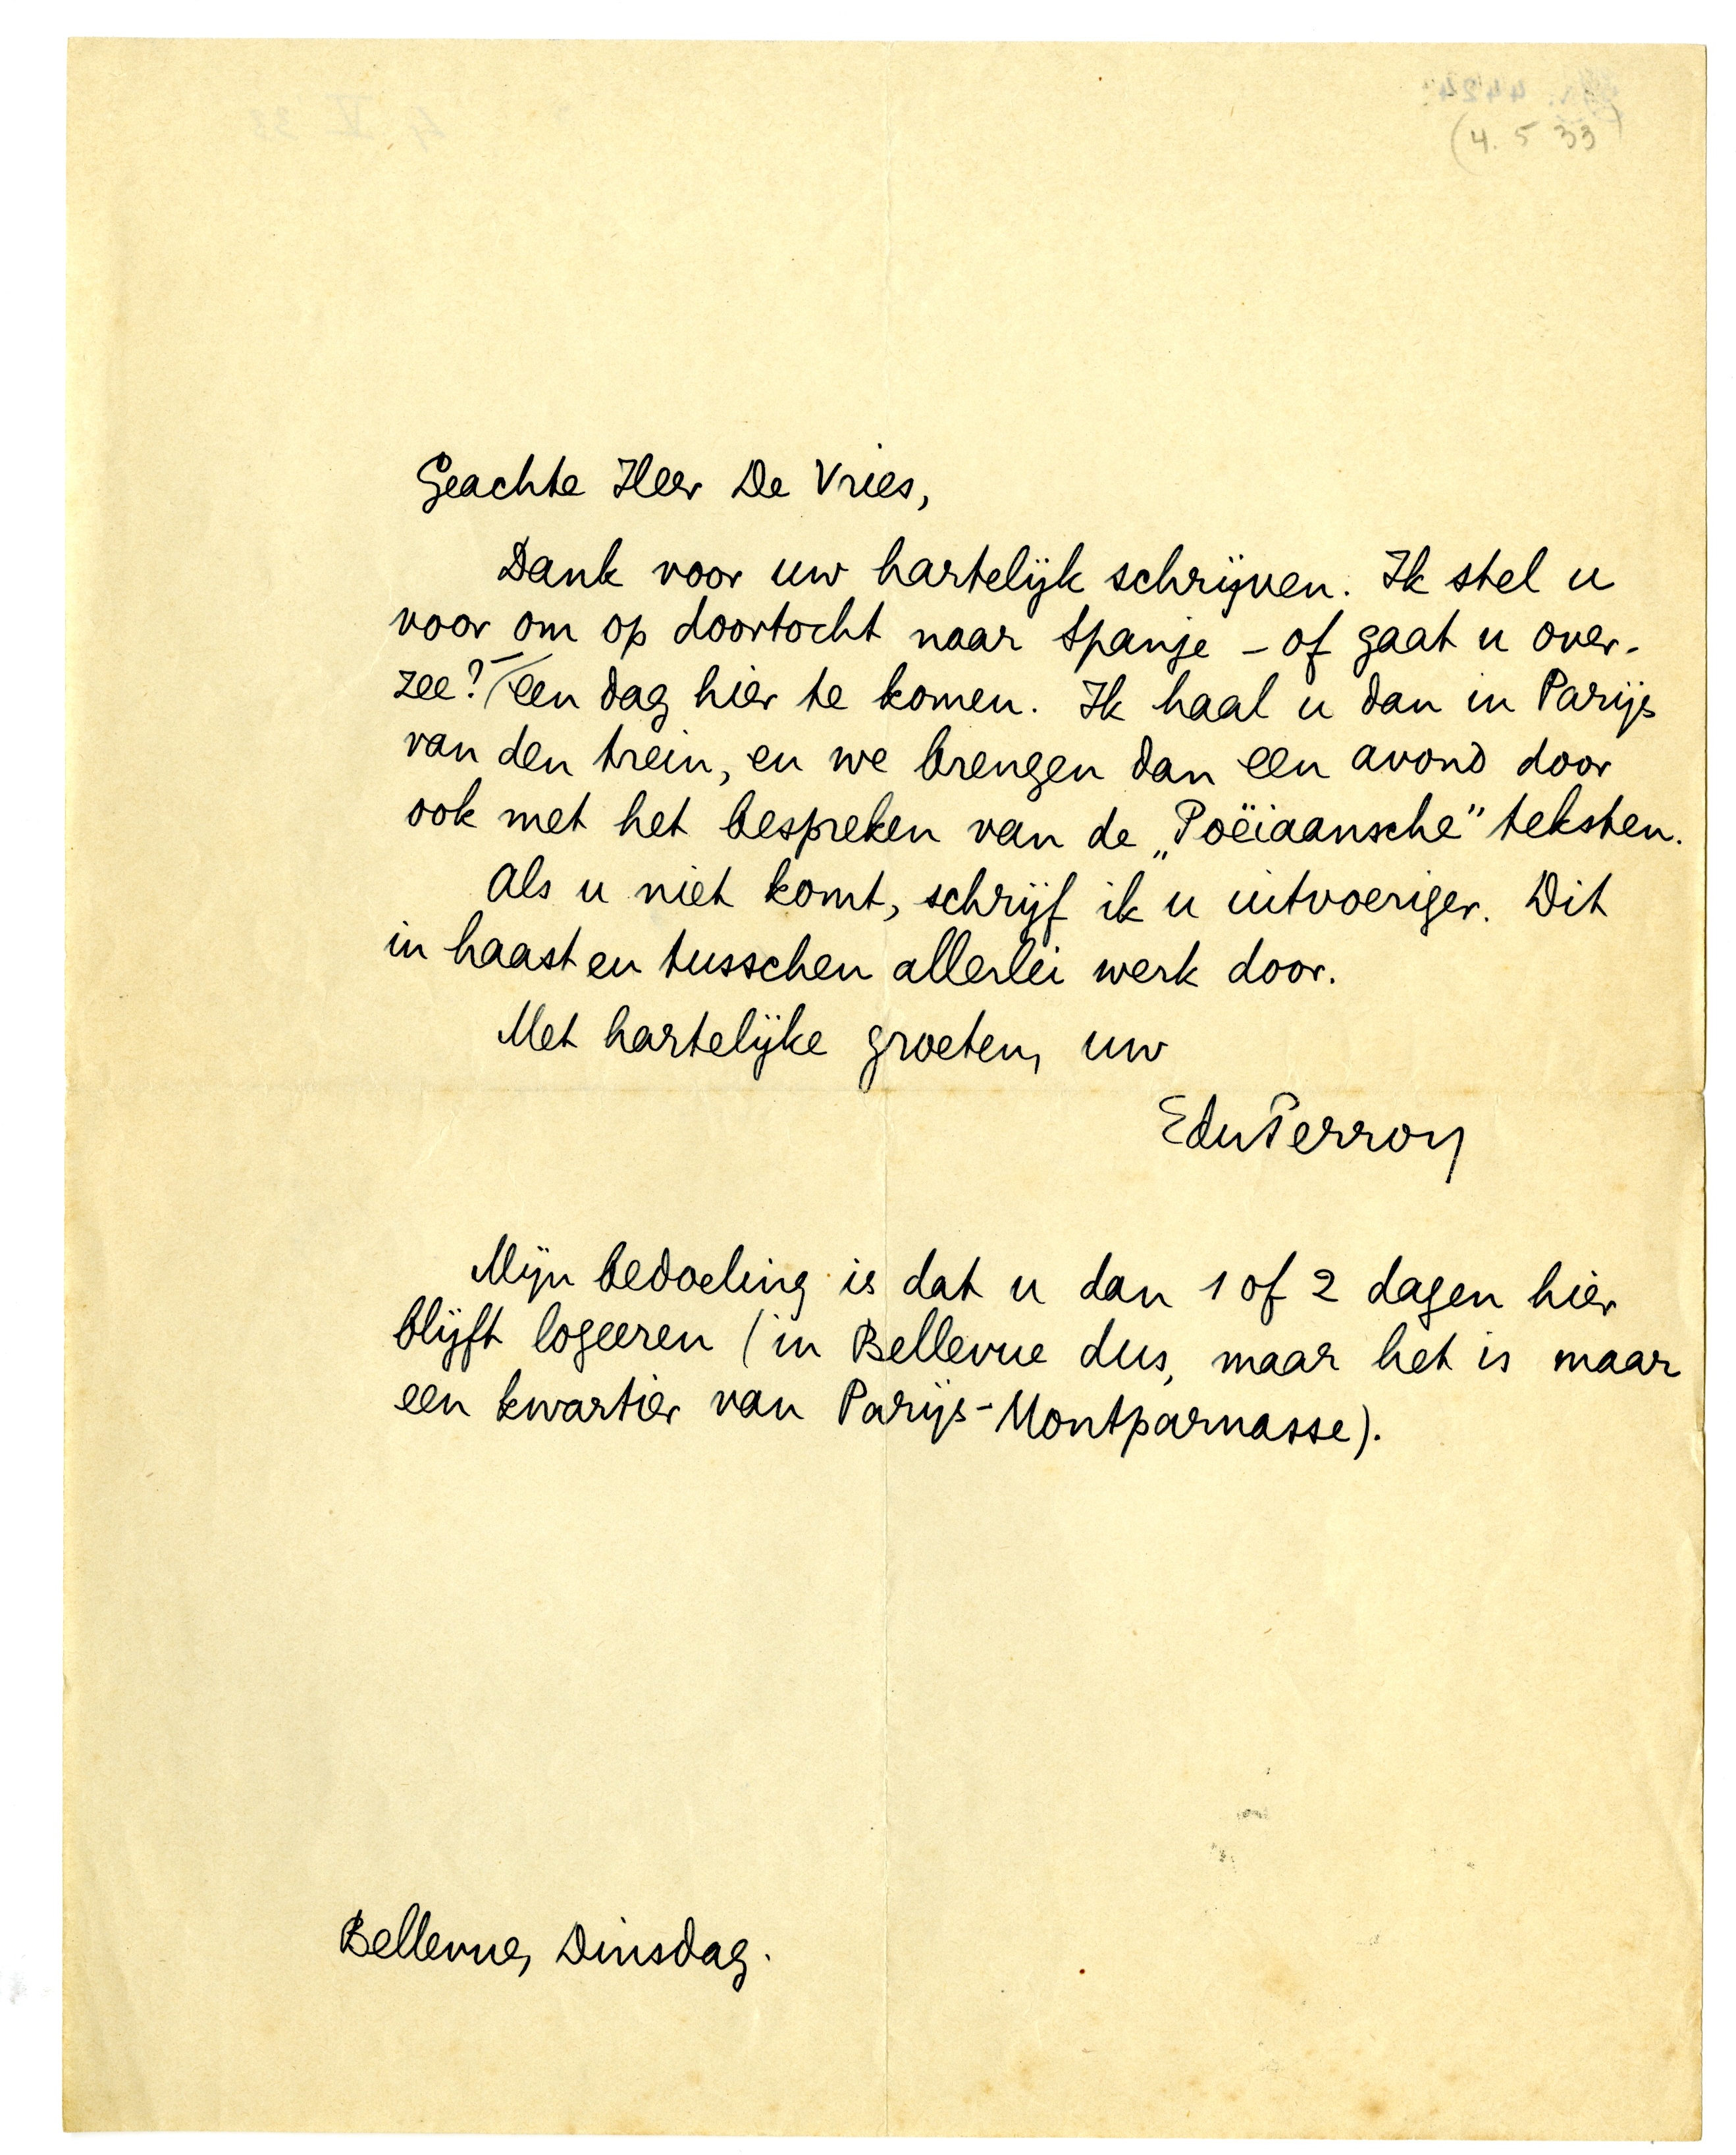 (4. 5 33)
Geachte Heer De Vries,
Dank voor uw hartelijk schrijven. Ik stel u
voor om op doortocht naar Spanje – of gaat u over-
zee? – een dag hier te komen. Ik haal u dan in Parijs
van den trein, en we brengen dan een avond door
ook met het bespreken van de „Poëiaansche" teksten.
Als u niet komt, schrijf ik u uitvoeriger. Dit
in haast en tusschen allerlei werk door.
Met hartelijke groeten, uw
EduPerron
Mijn bedoeling is dat u dan 1 of 2 dagen hier
blijft logeeren (in Bellevue dus, maar het is maar
een kwartier van Parijs-Montparnasse).
Bellevue, Dinsdag.